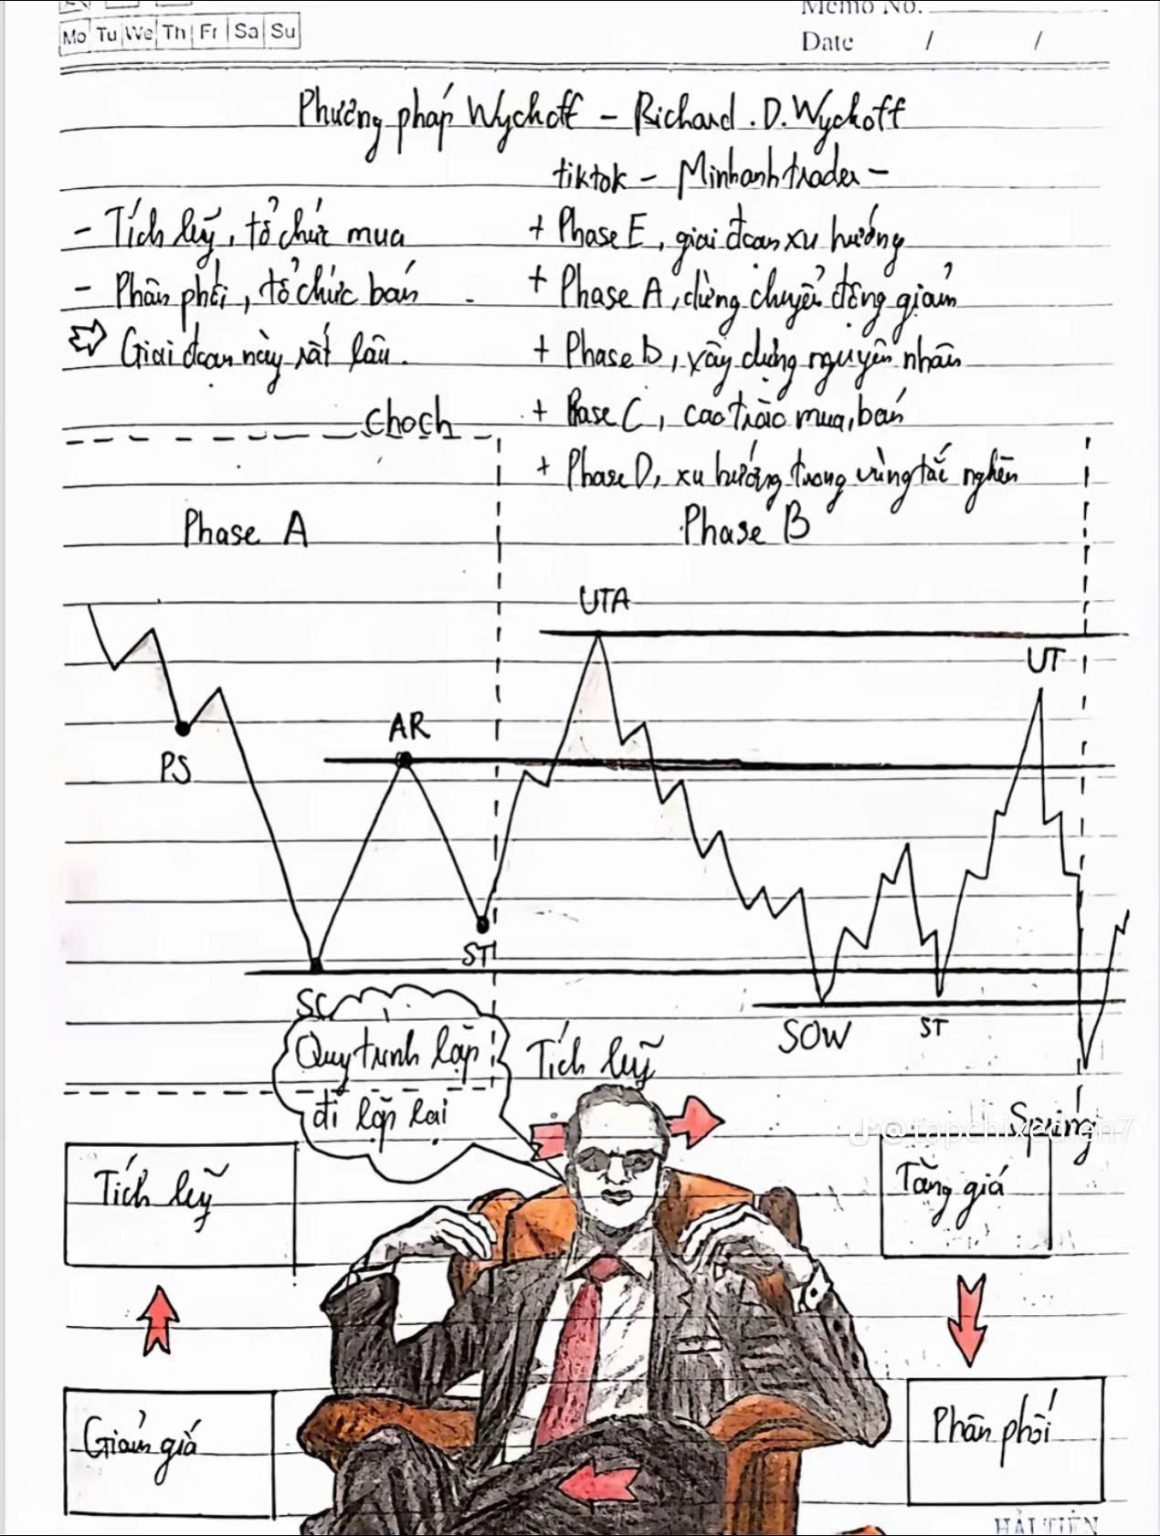 Memo No.
Mo Tu We Th Fr Sa Su
Date / /
Phương pháp Wyckoff - Richard . D. Wyckoff
tiktok - Minhanhtrader -
- Tích luỹ, tổ chức mua
- Phân phối, tổ chức bán
Giai đoạn này rất lâu.
+ Phase E, giai đoạn xu hướng
+ Phase A, dừng chuyển động giảm
+ Phase b, xây dựng nguyên nhân
+ Phase C, cao trào mua, bán
+ Phase D, xu hướng trong vùng tắc nghẽn
choch
Phase A
Phase B
UTA
UT
AR
PS
ST
SC
SOW
ST
Quy trình lặp
đi lặp lại
Tích luỹ
Spring
Tích luỹ
Tăng giá
Giảm giá
Phân phối
HẢI TIẾN